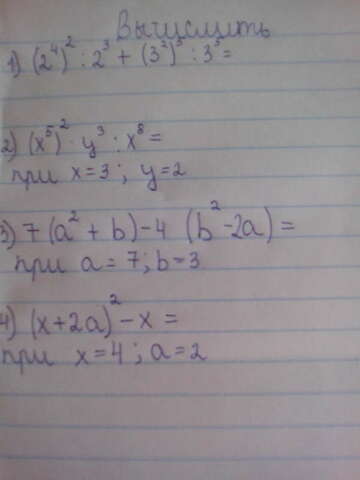 Вычислить
1) (2⁴)² : 2³ + (3²)³ : 3³ =
2) (x⁵)² · y³ : x⁸ =
при x = 3 ; y = 2
3) 7 (a² + b) - 4 (b² - 2a) =
при a = 7; b = 3
4) (x + 2a)² - x =
при x = 4 ; a = 2